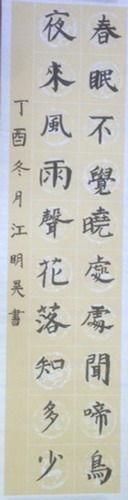 春眠不覺曉處處聞啼鳥
夜來風雨聲花落知多少
丁酉冬月江明昊書